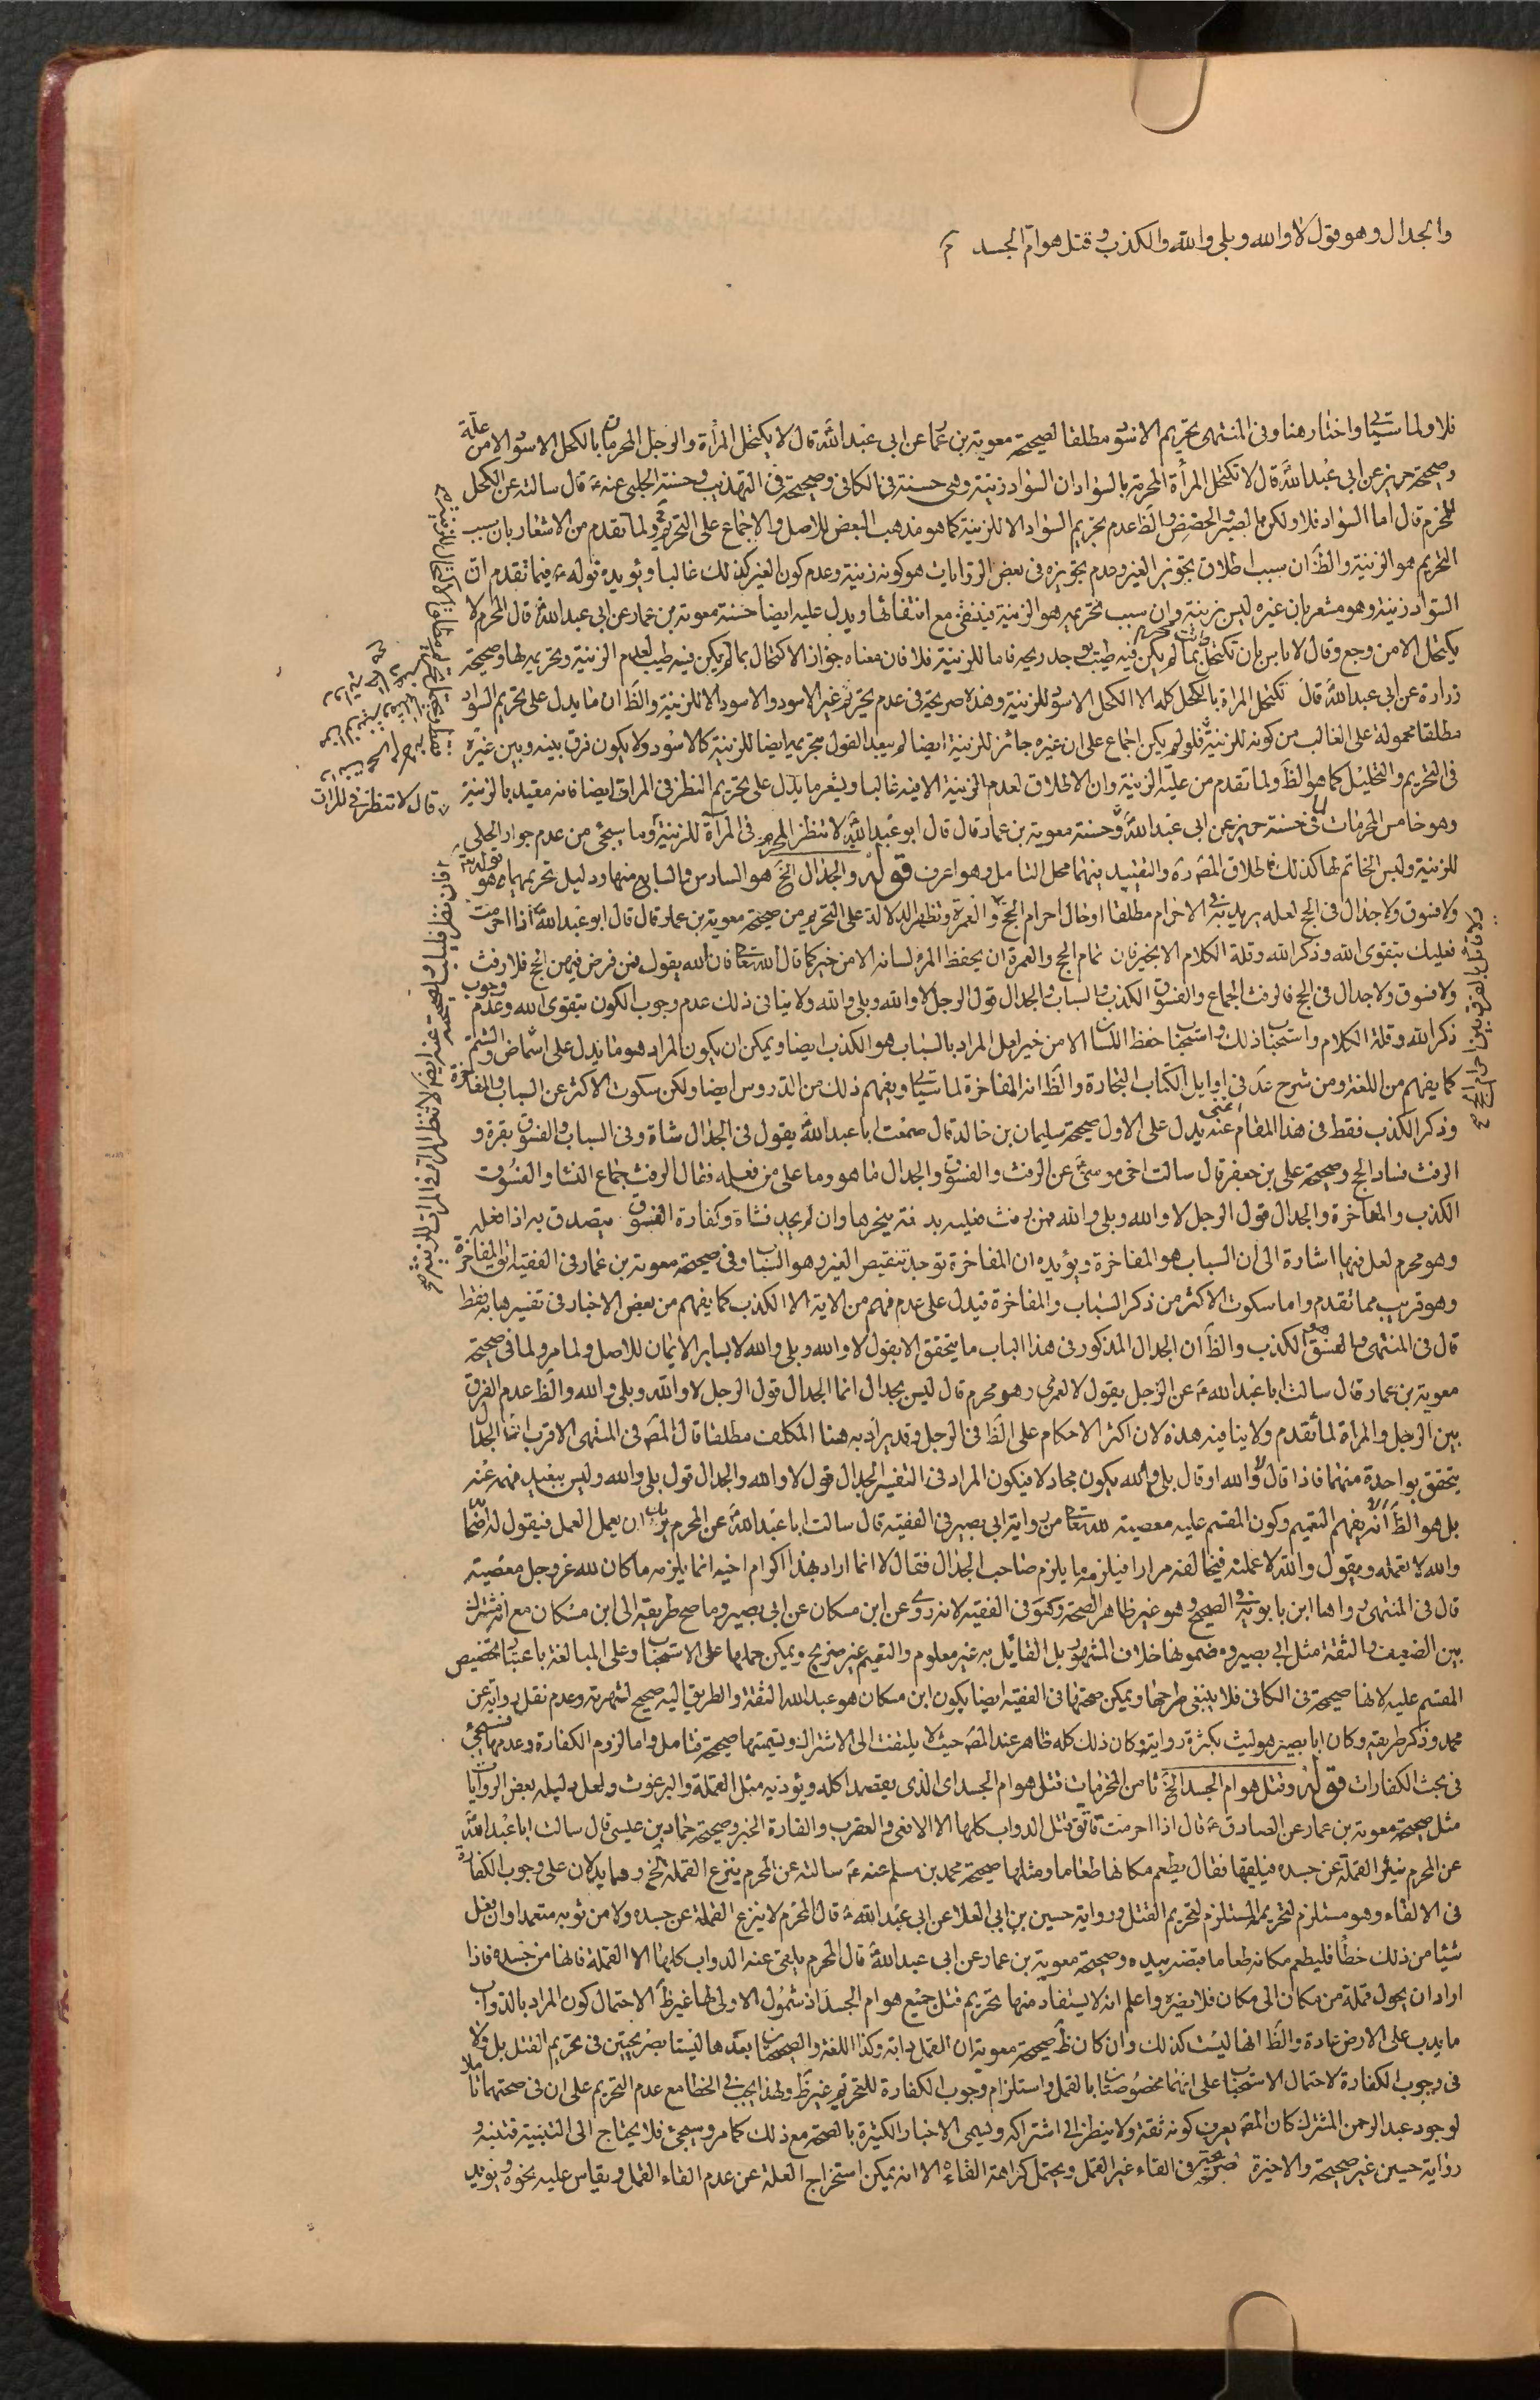 والجدال وهو قول لا والله وبلى والله والكذب وقتل هوام الجسد م
فلا ولما سيأتي واختار هنا وفى المنتهى تحريم الاسود مطلقا لصحيحة معوية بن عمار عن ابى عبد الله قال لا يكتحل المرأة والرجل المحرمان بالكحل الاسود الا من علة
وصحيحة حريز عن ابى عبد الله قال لا تكتحل المرأة المحرمة بالسواد ان السواد زينة وهى حسنة فى الكافى وصحيحة فى التهذيب وحسنة الحلبى عنه ع قال سالته عن الكحل
للمحرم قال اما السواد فلا ولكن بالصبر والحضض والظ عدم تحريم السواد الا للزينة كما هو مذهب البعض للاصل والاجماع على التحريم ولما تقدم من الاشعار بان سبب
التحريم هو الزينة والظ ان سبب اطلاق تجويز الغير وعدم تجويزه فى بعض الروايات هو كونه زينة وعدم كون الغير كذلك غالبا ويؤيده قوله ع فيما تقدم ان
السواد زينة وهو مشعر بان غيره ليس بزينة وان سبب تحريمه هو الزينة فينتفى مع انتفائها ويدل عليه ايضا حسنة معوية بن عمار عن ابى عبد الله قال المحرم لا
يكتحل الا من وجع وقال لا باس بان تكتحل بما لم يكن فيه طيب يوجد ريحه فاما للزينة فلا فان معناه جواز الاكتحال بما لم يكن فيه طيب لعدم الزينة وتحريمه لها وصحيحة
زرارة عن ابى عبد الله قال تكتحل المراة بالكحل كله الا الكحل الاسود للزينة وهذه صريحة فى عدم تحريم غير الاسود والاسود الا للزينة والظ ان ما يدل على تحريم السواد
مطلقا محمولة على الغالب من كونه للزينة فلو لم يكن اجماع على ان غيره جائز للزينة ايضا لم يبعد القول بتحريمه ايضا للزينة كالاسود ولا يكون فرق بينه وبين غيره
فى التحريم والتحليل كما هو الظ ولما تقدم من علية الزينة وان الاطلاق لعدم الزينة الا فيه غالبا ويشعر ما يدل على تحريم النظر فى المراة ايضا فانه مقيد بالزينة
وهو خامس المحرمات لما فى حسنة حريز عن ابى عبد الله وحسنة معوية بن عمار قال قال ابو عبد الله لا تنظر المحرم فى المرآة للزينة وما سيجئ من عدم جواز الحلى
للزينة ولبس الخاتم لها كذلك فاطلاق المصنف ره والتقييد بينهما محل التامل وهو اعرف قوله والجدال الخ هو السادس والسابع منها ودليل تحريمهما هو قوله تع
ولا فسوق ولا جدال فى الحج لعله يريد به فى الاحرام مطلقا او خال احرام الحج والعمرة وتظهر الدلالة على التحريم من صحيحة معوية بن عمار قال قال ابو عبد الله اذا احرمت
فعليك بتقوى الله وذكر الله وقلة الكلام الا بخير فان تمام الحج والعمرة ان يحفظ المرء لسانه الا من خير كما قال الله تعالى فان الله يقول فمن فرض فيهن الحج فلا رفث
ولا فسوق ولا جدال فى الحج فالرفث الجماع والفسوق الكذب والسباب والجدال قول الرجل لا والله وبلى والله ولا ينافى ذلك عدم وجوب الكون بتقوى الله وعدم وجوب
ذكر الله وقلة الكلام واستحباب ذلك واستحباب حفظ اللسان الا من خير لعل المراد بالسباب هو الكذب ايضا ويمكن ان يكون المراد هو ما يدل على اسماض والشتم
كما يفهم من اللغة ومن شرح عد فى اوايل الكتاب التجارة والظ انه المفاخرة لما سيأتى ويفهم ذلك من الدروس ايضا ولكن سكوت الاكثر عن السباب والمفاخرة
وذكر الكذب فقط فى هذا المقام يدل على الاول صحيحة سليمان بن خالد قال سمعت ابا عبد الله يقول فى الجدال شاة وفى السباب والفسوق بقرة و
الرفث فساد الحج وصحيحة على بن جعفر قال سالت اخى موسى عن الرفث والفسوق والجدال ما هو وما على من فعله فقال الرفث جماع النساء والفسوق
الكذب والمفاخرة والجدال قول الرجل لا والله وبلى والله فمن رفث فعليه بدنة ينحرها وان لم يجد فشاة وكفارة الفسوق يتصدق به اذا فعله
وهو محرم لعل فيها اشارة الى ان السباب هو المفاخرة ويؤيده ان المفاخرة توجب تنقيص الغير وهو السباب وفى صحيحة معوية بن عمار فى الفقيه اتق المفاخرة
وهو قريب مما تقدم واما سكوت الاكثر من ذكر السباب والمفاخرة فيدل على عدم فهم من الاية الا الكذب كما يفهم من بعض الاخبار فى تفسيرها به فقط
قال فى المنتهى والفسق هو الكذب والظ ان الجدال المذكور فى هذا الباب ما يتحقق الا بقول لا والله وبلى والله لا بساير الايمان للاصل ولما مر ولما فى صحيحة
معوية بن عمار قال سالت ابا عبد الله ع عن الرجل يقول لا لعمرى وهو محرم قال ليس بجدال انما الجدال قول الرجل لا والله وبلى والله والظ عدم الفرق
بين الرجل والمراة لما تقدم ولا ينافيه هذه لان اكثر الاحكام على الظ فى الرجل وقد يراد به هنا المكلف مطلقا قال المصنف فى المنتهى الاقرب انما الجدال
يتحقق بواحدة منهما فاذا قال لا والله او قال بلى والله يكون مجادلا فيكون المراد فى التفسير الجدال قول لا والله والجدال قول بلى والله وليس ببعيد فهمه عنه
بل هو الظ الا انه يفهم التعميم وكون المقسم عليه معصية لله تعالى من رواية ابى بصير فى الفقيه قال سالت ابا عبد الله عن المحرم يريد ان يعمل العمل فيقول له صاحبه
والله لا تعمله ويقول والله لاعملنه فيحالفه مرارا فيلزمه ما يلزم صاحب الجدال فقال لا انما اراد بهذا اكرام اخيه انما يلزمه ما كان لله عز وجل معصية
قال فى المنتهى رواها ابن بابويه فى الصحيح وهو غير ظاهر الصحة وكتوى فى الفقيه لانه روى عن ابن مسكان عن ابى بصير وما صح طريقه الى ابن مسكان مع انه مشترك
بين الضعيف والثقة مثل ابى بصير ومضمونها خلاف المشهور بل القايل به غير معلوم والتعيم غير صريح ويمكن حملها على الاستحباب وعلى المبالغة باعتبار تخصيص
المقسم عليه لانها صحيحة فى الكافى فلا ينبغى طرحها ويمكن صحتها فى الفقيه ايضا بكون ابن مسكان هو عبد الله الثقة والطريق اليه صحيح لشهرته وعدم نقل روايته عن
محمد وذكر طريقه وكان ابا بصير هو ليث بكثرة روايته وكان ذلك كله ظاهر عند المصنف حيث لا يلتفت الى الاشتراك وتسميتها صحيحة فتامل واما لزوم الكفارة وعدمها فسيجئ
فى بحث الكفارات قوله وقتل هوام الجسد الخ ثامن المحرمات قتل هوام الجسد اى الذى يقصد اكله ويؤذيه مثل القملة والبرغوث ولعل دليله بعض الروايات
مثل صحيحة معوية بن عمار عن الصادق ع قال اذا احرمت فاتق قتل الدواب كلها الا الافعى والعقرب والفارة الخبر وصحيحة حماد بن عيسى قال سالت ابا عبد الله
عن المحرم يبين القملة عن جسده فيلقيها فقال يطعم مكانها طعاما ومثلها صحيحة محمد بن مسلم عنه ع سالته عن المحرم ينزع القملة الخ وهما يدلان على وجوب الكفارة
فى الالقاء وهو مستلزم لتحريمه المستلزم لتحريم القتل ورواية حسين بن ابى العلا عن ابى عبد الله ع قال المحرم لا ينزع القملة عن جسده ولا من ثوبه متعمدا وان فعل
شيئا من ذلك خطأ فليطعم مكانه طعاما قبضة بيده وصحيحة معوية بن عمار عن ابى عبد الله قال المحرم يلقى عنه الدواب كلها الا القملة فانها من جسده فاذا
اراد ان يحول قملة من مكان الى مكان فلا يضره واعلم انه لا يستفاد منها تحريم قتل جميع هوام الجسد اذ شمول الاولى لها غير ظ لاحتمال كون المراد بالدواب
ما يدب على الارض عادة والظ انها ليست كذلك وان كان ظ صحيحة معوية ان القمل دابة وكذا اللغة والصحيحتان بعدها ليستا بصريحتين فى تحريم القتل بل ولا
فى وجوب الكفارة لاحتمال الاستحباب على انهما مخصوصتان بالقمل واستلزام وجوب الكفارة للتحريم غير ظ ولهذا يجب فى الخطا مع عدم التحريم على ان فى صحتهما تاملا
لوجود عبد الرحمن المشترك كان المصنف يعرف كونه ثقة ولا ينظر الى اشتراكه ويسمى الاخبار الكثيرة بالصحة مع ذلك كما مر وسيجئ فلا يحتاج الى التنبيه فتنبه و
رواية حسين غير صحيحة والاخيرة صريحة فى القاء غير القمل ويحتمل كراهة القاءه الا انه يمكن استخراج العلة عن عدم القاء القمل ويقاس عليه نحوه ويؤيد
قال لا تنظر فى المرات
ولا قائل بالفرق بين احرام الحج